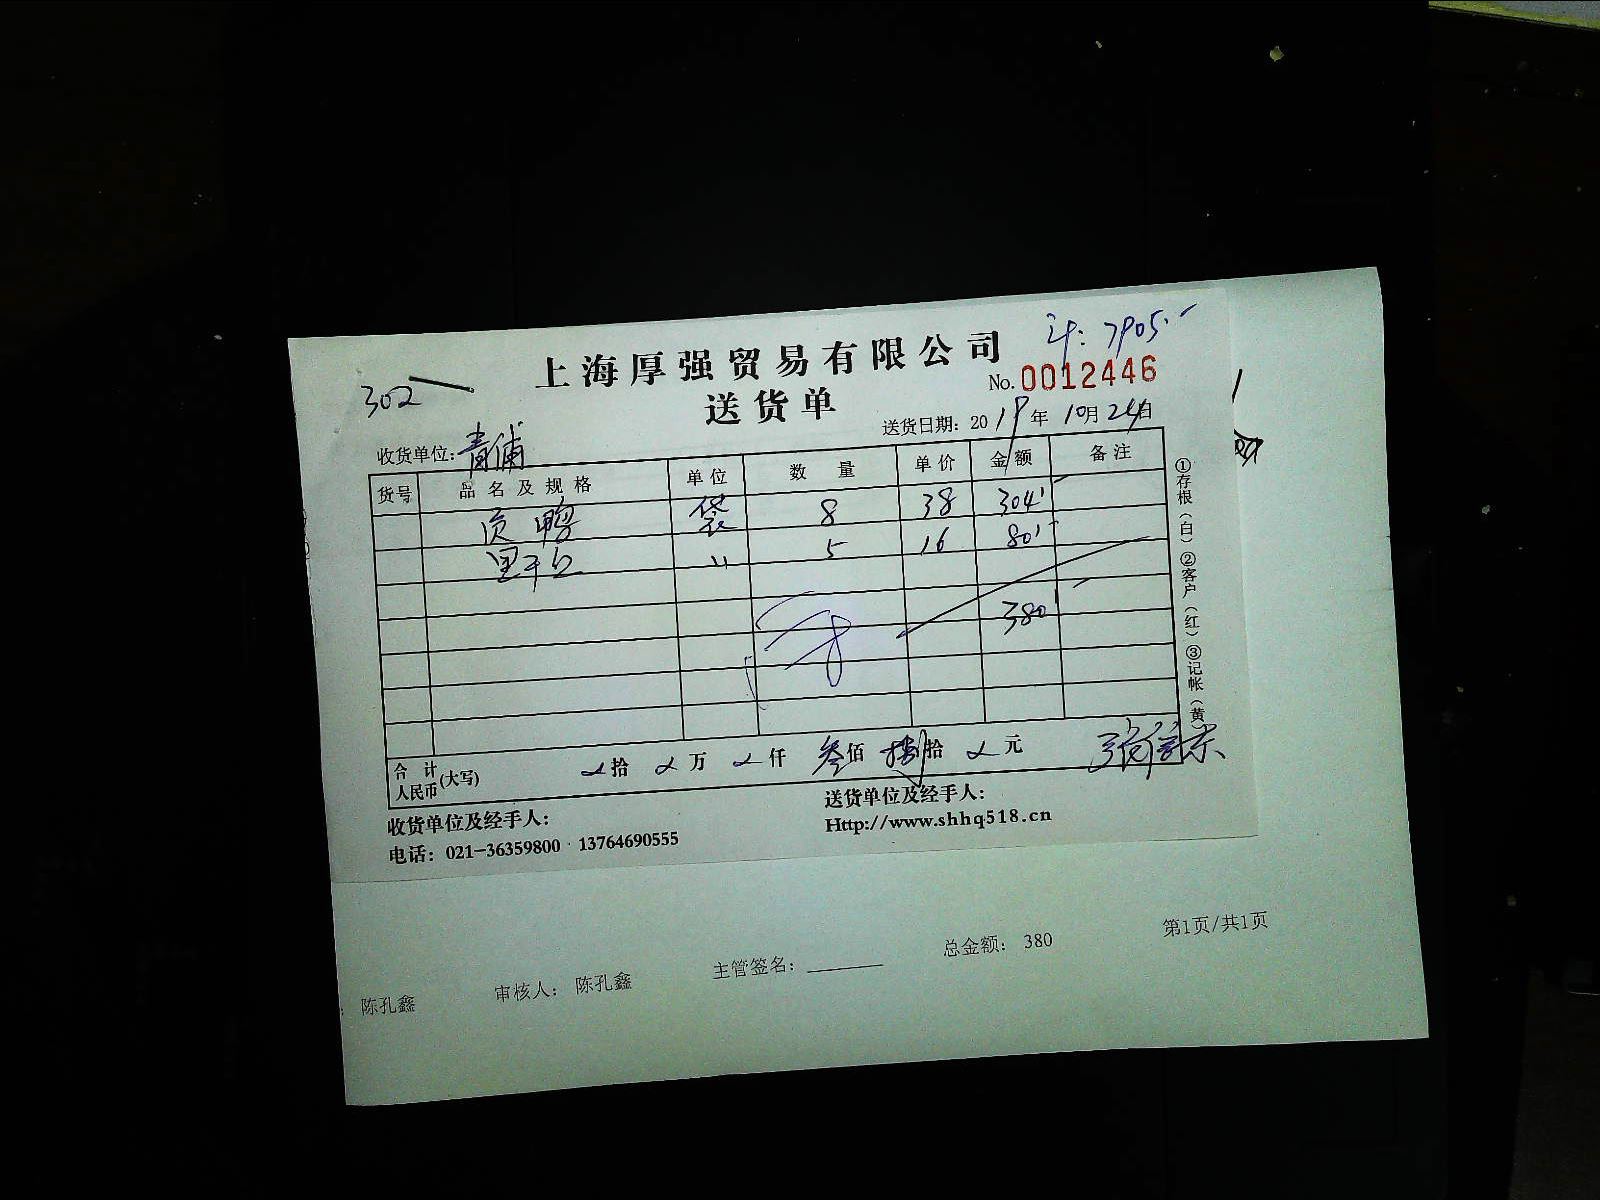 计: 7905.-
上海厚强贸易有限公司
302
No. 0012446
送货单
送货日期: 2019年10月24日
收货单位: 青浦
货号 品名及规格 单位 数量 单价 金额 备注
鸭 袋 8 38 304
〃 5 16 80
380
合计人民币(大写) 拾 万 仟 叁佰 捌拾 元
收货单位及经手人:
送货单位及经手人:
电话: 021-36359800 13764690555
Http://www.shhq518.cn
①存根(白)②客户(红)③记帐(黄)
: 陈孔鑫 审核人: 陈孔鑫 主管签名: 总金额: 380 第1页/共1页